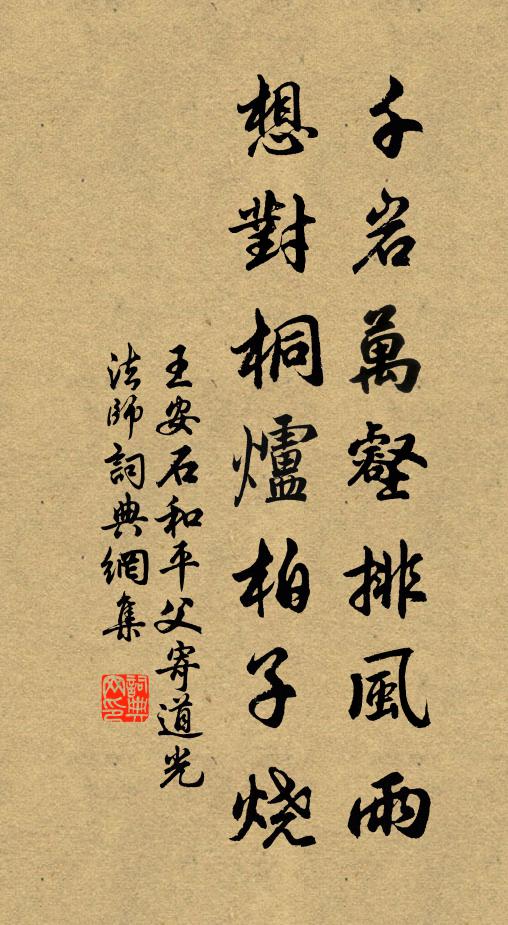 千岩萬壑排風雨
想對桐爐柏子燒
王安石和平父寄道光
法師詞典網集